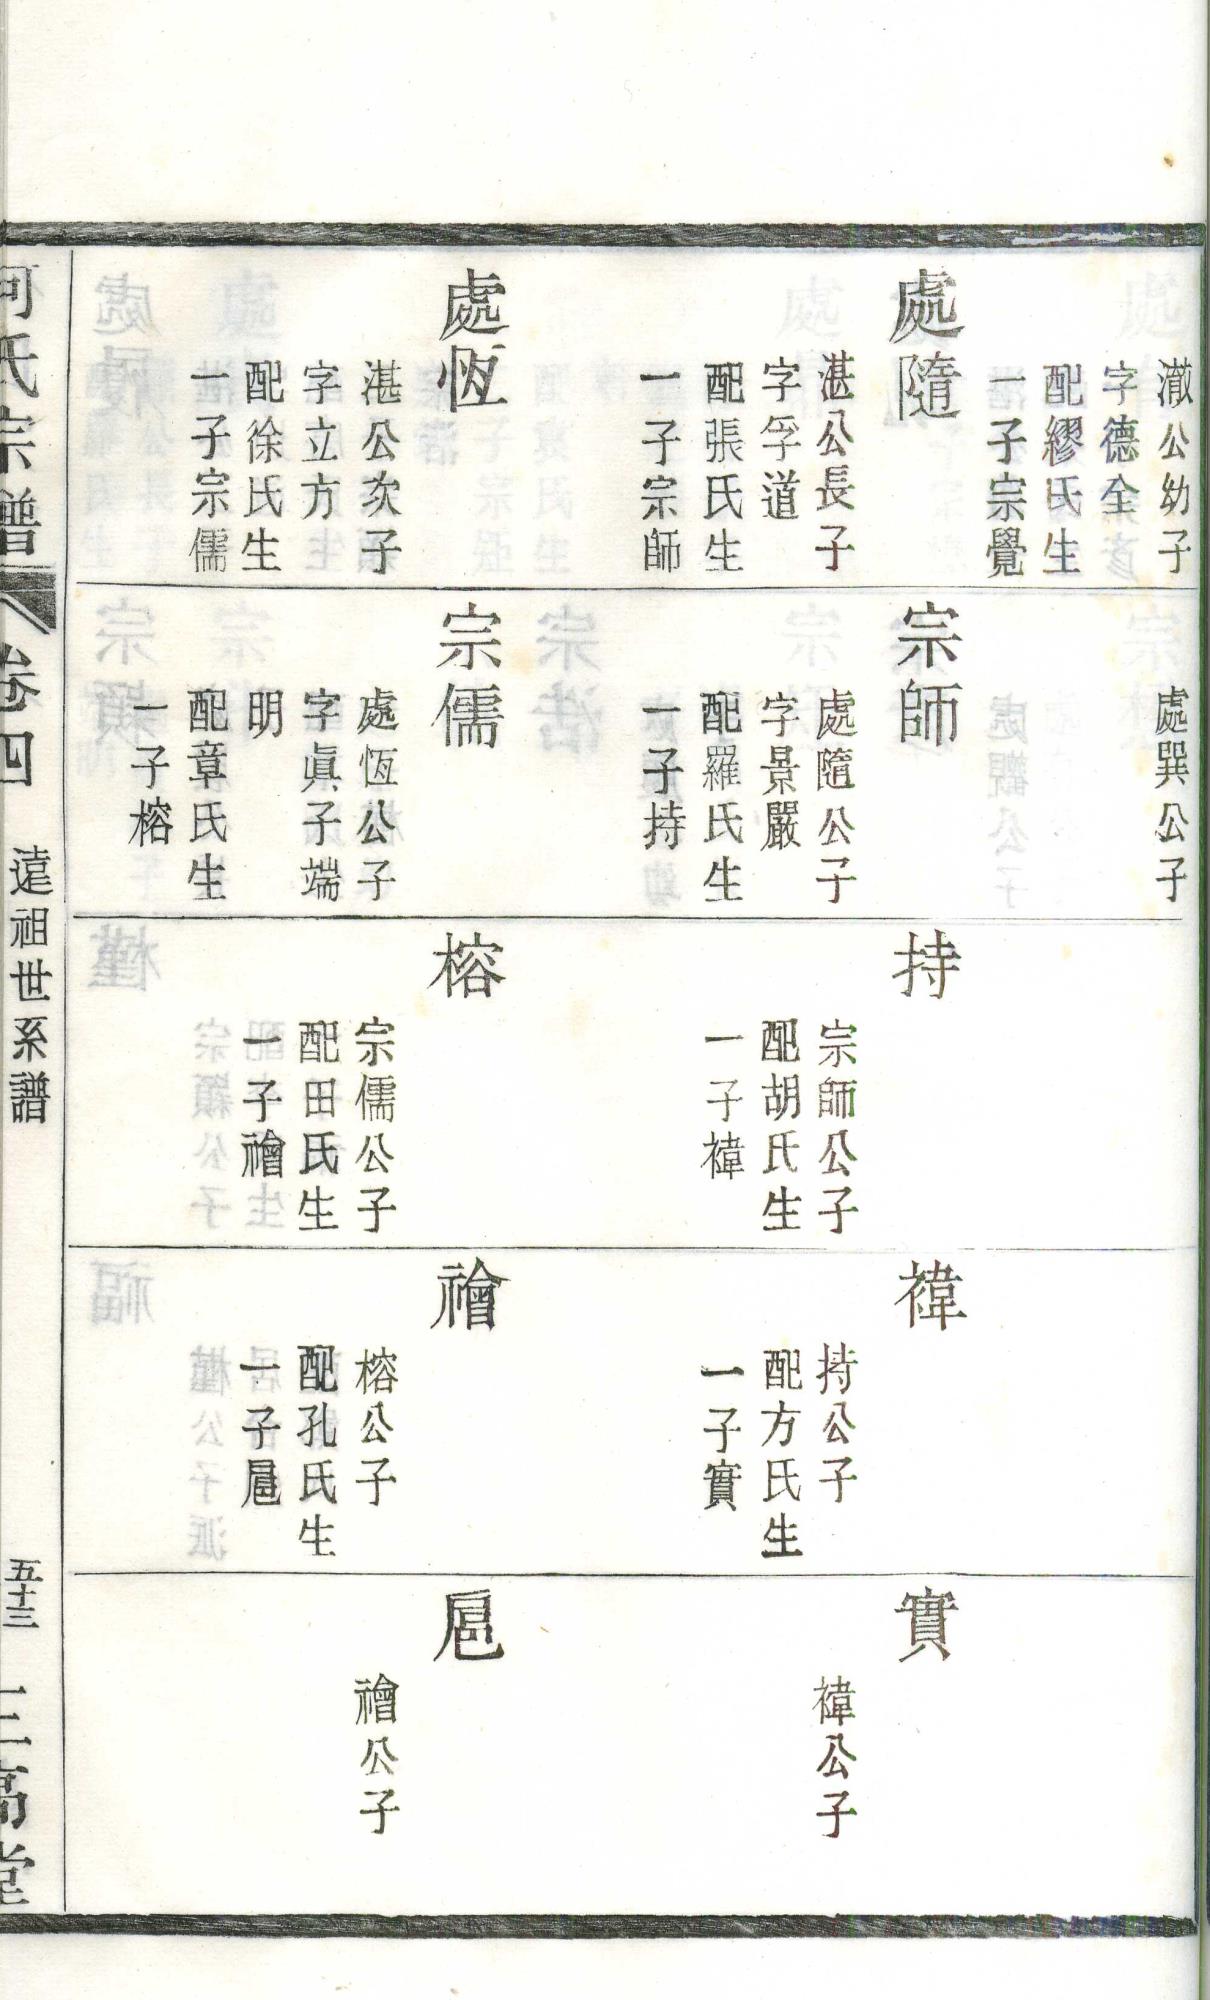 澈公幼子
字德全
配繆氏生
一子宗覺
處隨
湛公長子
字孚道
配張氏生
一子宗師
處恆
湛公次子
字立方
配徐氏生
一子宗儒
處巽公子
宗師
處隨公子
字景嚴
配羅氏生
一子持
宗儒
處恆公子
字眞子端
明
配章氏生
一子榕
持
宗師公子
配胡氏生
一子禕
榕
宗儒公子
配田氏生
一子禬
禕
持公子
配方氏生
一子實
禬
榕公子
配孔氏生
一子扈
實
禕公子
扈
禬公子
何氏宗譜
卷四
遠祖世系譜
五十三
三高堂